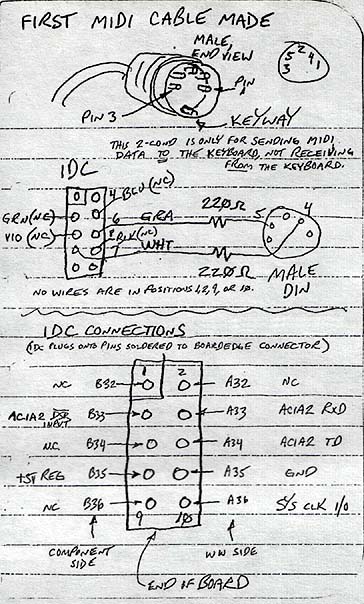 FIRST MIDI CABLE MADE
MALE, END VIEW
5 2 4 1
3
PIN
PIN 3
KEYWAY
THIS 2-COND IS ONLY FOR SENDING MIDI
DATA TO THE KEYBOARD, NOT RECEIVING
FROM THE KEYBOARD.
IDC
4 BLU (NC)
GRN (NC)
6 GRA
220Ω
5 4
VIO (NC)
8 BLK (NC)
7 WHT
220Ω
MALE
DIN
NO WIRES ARE IN POSITIONS 1, 2, 9, OR 10.
IDC CONNECTIONS
(IDC PLUGS ONTO PINS SOLDERED TO BOARDEDGE CONNECTOR)
1 2
NC B32 A32 NC
ACIA2 INPUT B33 A33 ACIA2 RXD
NC B34 A34 ACIA2 TD
+5V REG B35 A35 GND
NC B36 A36 S/S CLK I/O
9 10
COMPONENT
SIDE
WW SIDE
END OF BOARD